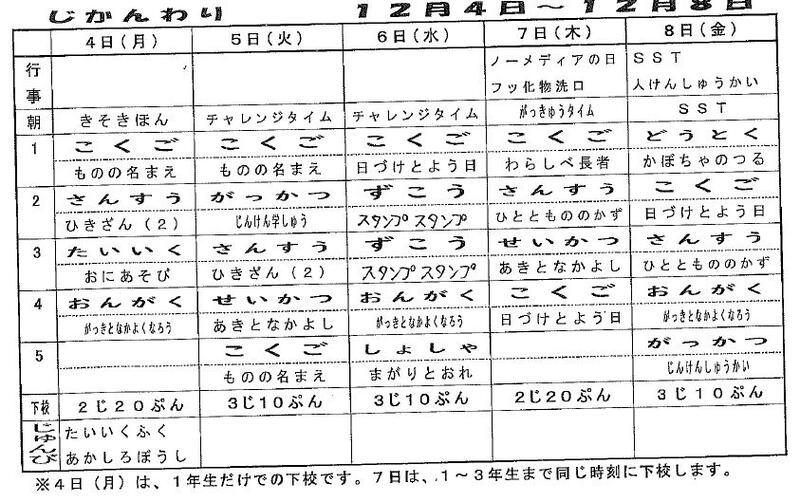 じかんわり　１２月４日～１２月８日
４日(月)　５日(火)　６日(水)　７日(木)　８日(金)
行事　ノーメディアの日　ＳＳＴ
フッ化物洗口　人けんしゅうかい
朝　きそきほん　チャレンジタイム　チャレンジタイム　がっきゅうタイム　ＳＳＴ
1　こくご　こくご　こくご　こくご　どうとく
ものの名まえ　ものの名まえ　日づけとよう日　わらしべ長者　かぼちゃのつる
2　さんすう　がっかつ　ずこう　さんすう　こくご
ひきざん（2）　じんけん学しゅう　スタンプ スタンプ　ひとともののかず　日づけとよう日
3　たいいく　さんすう　ずこう　せいかつ　さんすう
おにあそび　ひきざん（2）　スタンプ スタンプ　あきとなかよし　ひとともののかず
4　おんがく　せいかつ　おんがく　こくご　おんがく
がっきとなかよくなろう　あきとなかよし　がっきとなかよくなろう　日づけとよう日　がっきとなかよくなろう
5　こくご　しょしゃ　がっかつ
ものの名まえ　まがりとおれ　じんけんしゅうかい
下校　２じ２０ぷん　３じ１０ぷん　３じ１０ぷん　２じ２０ぷん　３じ１０ぷん
じゅんび　たいいくふく
あかしろぼうし
※４日（月）は、１年生だけでの下校です。７日は、１～３年生まで同じ時刻に下校します。